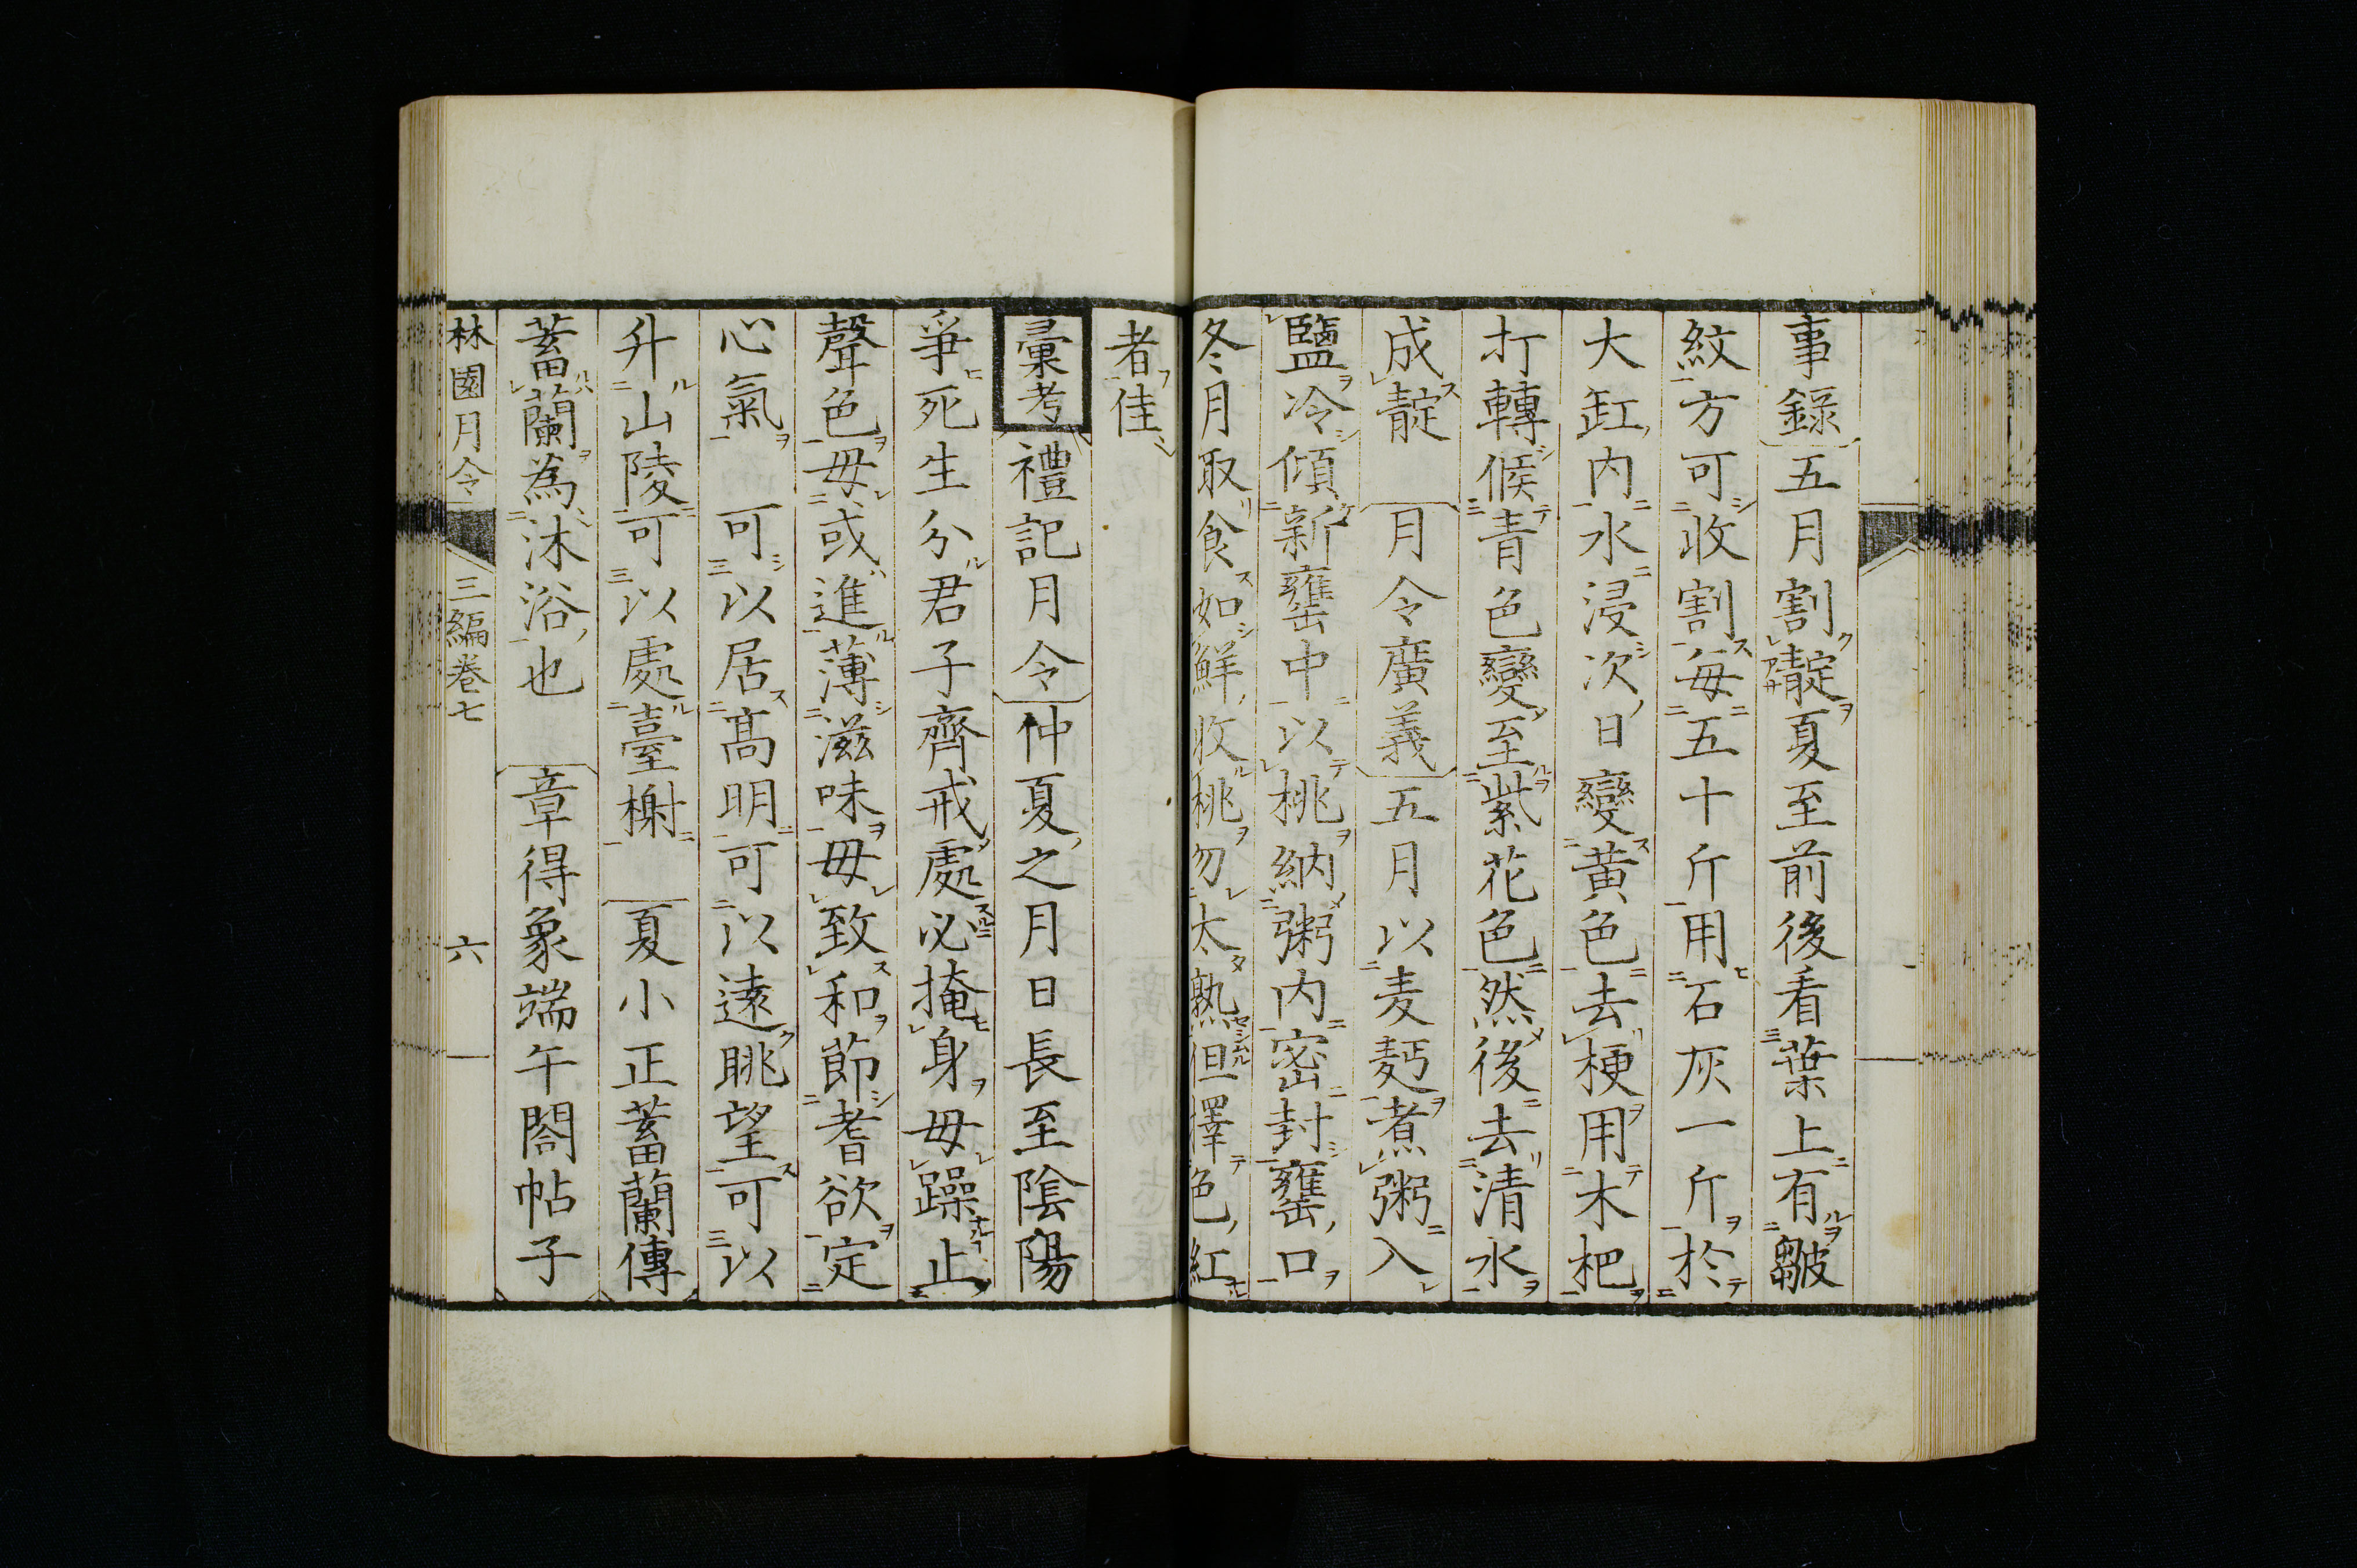 事錄五月割靛夏至前後看葉上有皺
紋方可收割每五十斤用石灰一斤於
大缸内水浸次日變黃色去梗用木杷
打轉候青色變至紫花色然後去清水
成靛 月令廣義五月以麦麪煮粥入
鹽冷傾新甕中以桃納粥内密封甕口
冬月取食如鮮收桃勿太熟但擇色紅
者佳
彙考禮記月令仲夏之月日長至陰陽
爭死生分君子齊戒處必掩身毋躁止
聲色毋或進薄滋味毋致和節耆欲定
心氣 可以居高明可以遠眺望可以
升山陵可以處臺榭 夏小正蓄蘭傳
蓄蘭為沐浴也 章得象端午閤帖子
林園月令 三編卷七 六